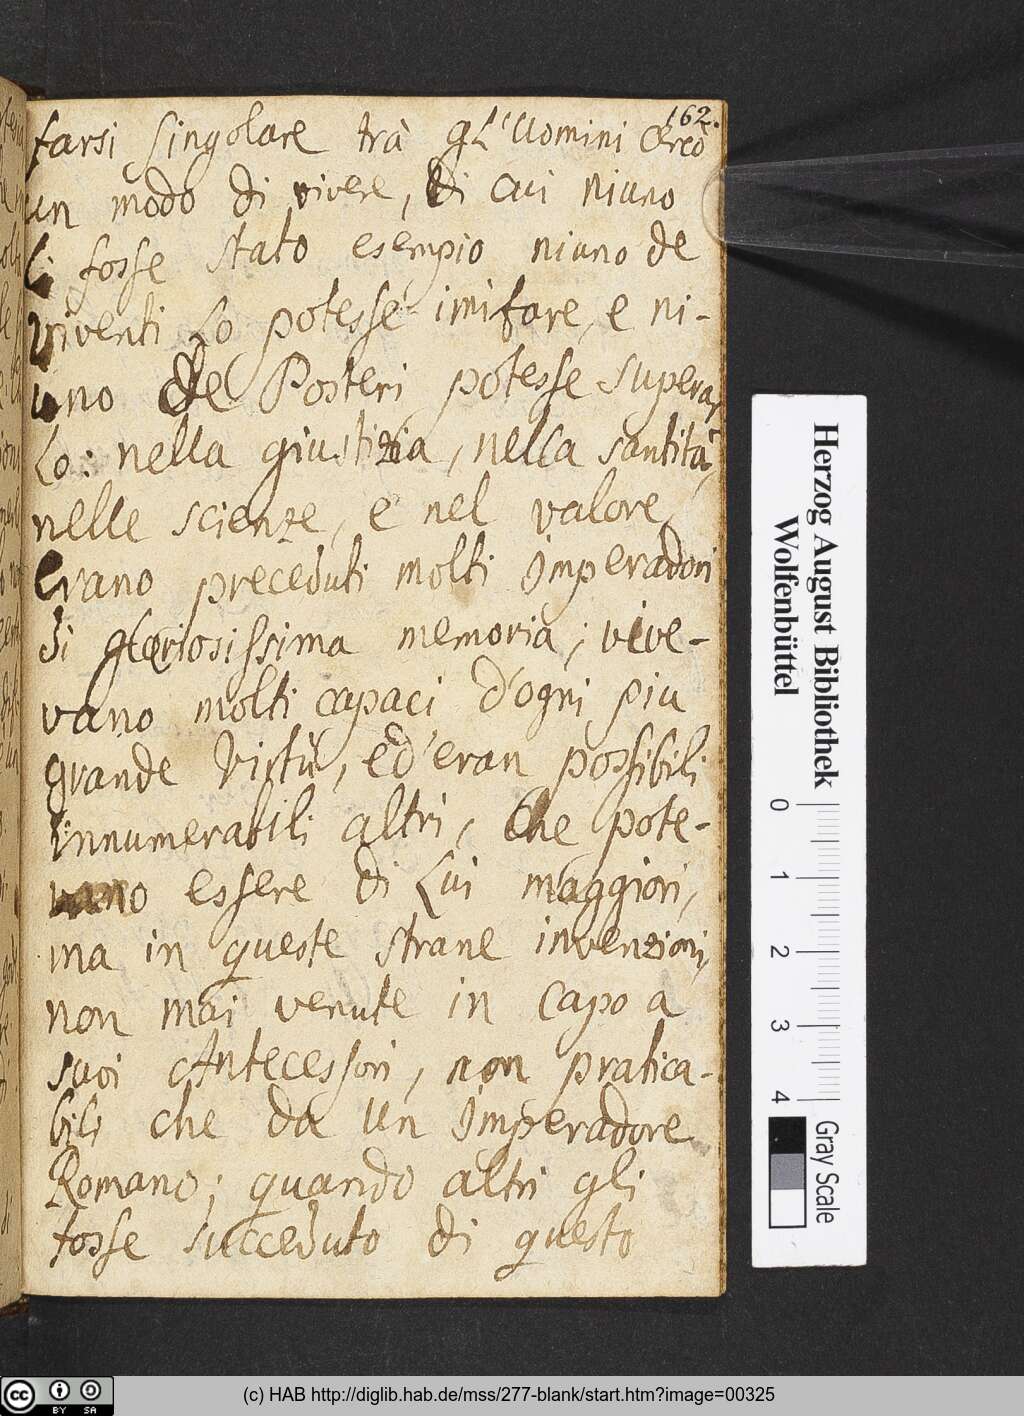 162.
farsi singolare trà gl'Uomini Creò
un modo di vivere, di cui niuno
li fosse stato esempio niuno de
viventi lo potesse imitare, e ni-
uno de Posteri potesse supera,
lo: nella giustizia, nella santità,
nelle scienze, e nel valore,
erano preceduti molti Imperadori
di gloriosissima memoria; vive-
vano molti capaci d'ogni piu
grande Virtù, ed'eran possibili
innumerabili altri, che pote-
vano essere di Lui maggiori,
ma in queste strane invenzioni,
non mai venute in capo a
suoi Antecessori, non pratica-
bili che da un Imperadore
Romano; quando altri gli
fosse succeduto di questo
Herzog August Bibliothek
Wolfenbüttel
0 1 2 3 4
Gray Scale
(c) HAB http://diglib.hab.de/mss/277-blank/start.htm?image=00325
cc BY SA